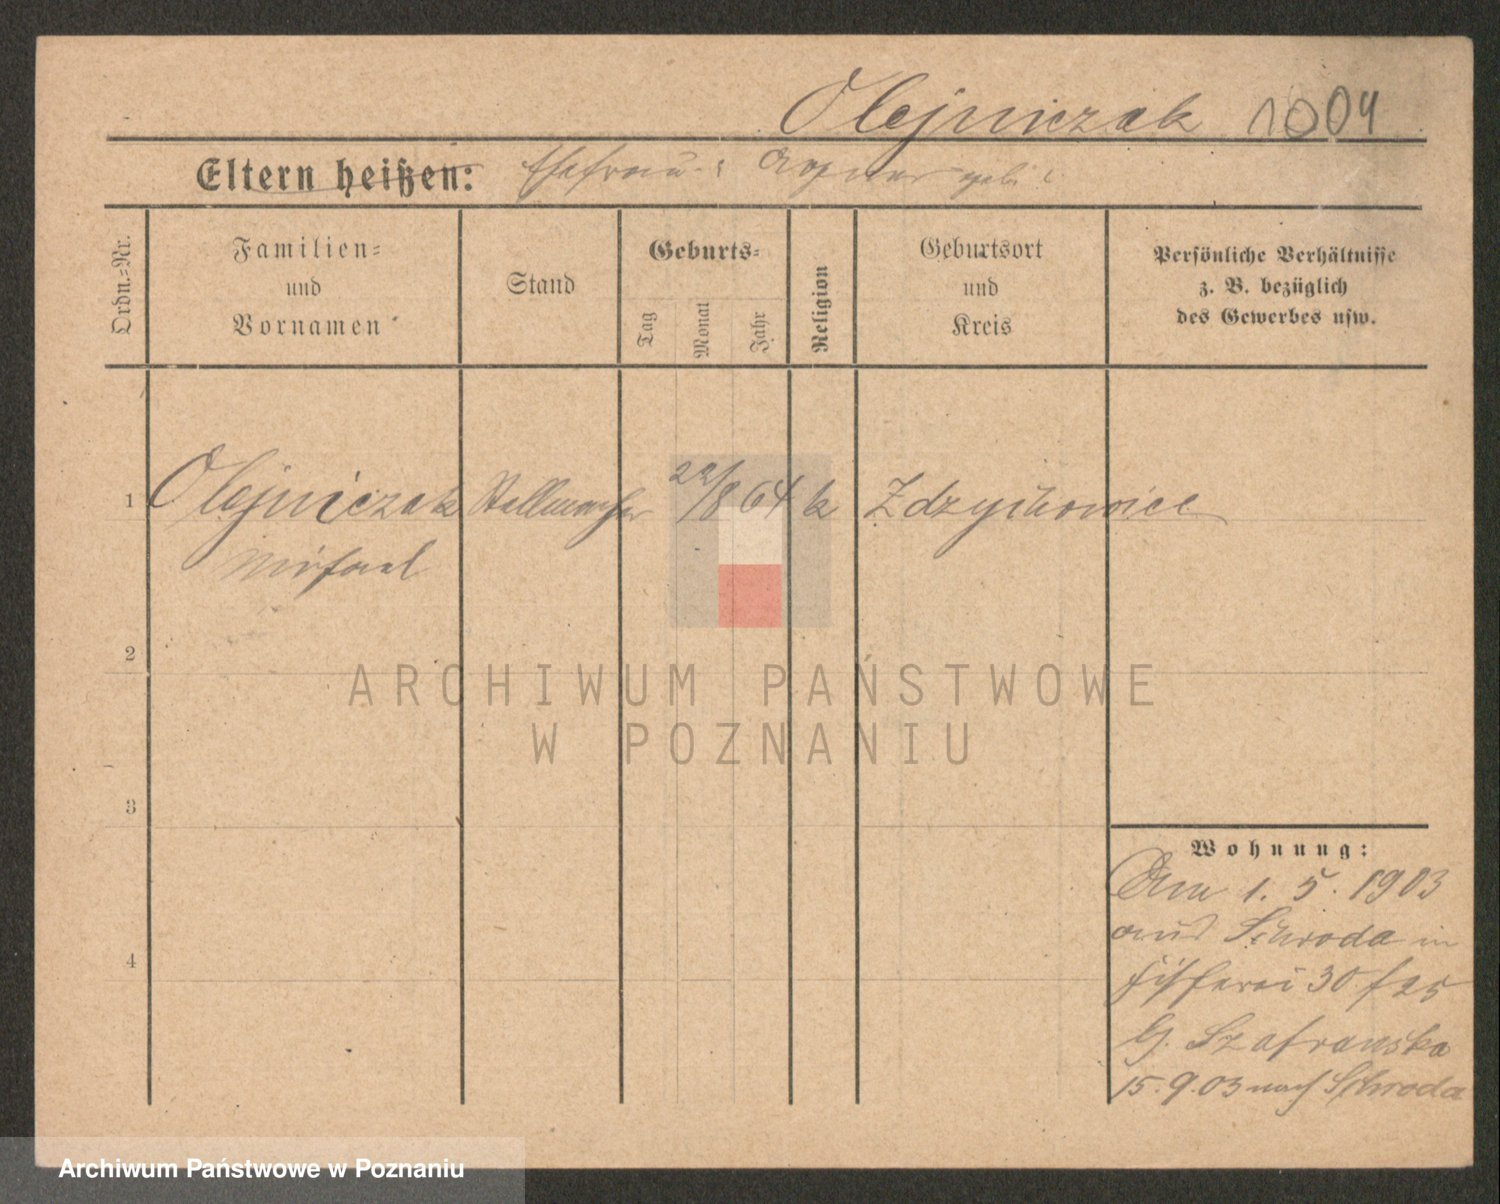 Olejniczak 1004
Eltern heißen: Ehefrau: Agnes geb.
Ordn.-Nr.
Familien-
und
Vornamen
Stand
Geburts-
Tag
Monat
Jahr
Religion
Geburtsort
und
Kreis
Persönliche Verhältnisse
z. B. bezüglich
des Gewerbes usw.
1 Olejniczak Stellmacher /8 64 k Zdzychowice
Michael
2
ARCHIWUM PAŃSTWOWE
W POZNANIU
3
Wohnung:
Am 1. 5. 1903
aus Schroda in
4
Fischerei 30 f 25
G. Szafranska
15. 9. 03 nach Schroda
Archiwum Państwowe w Poznaniu